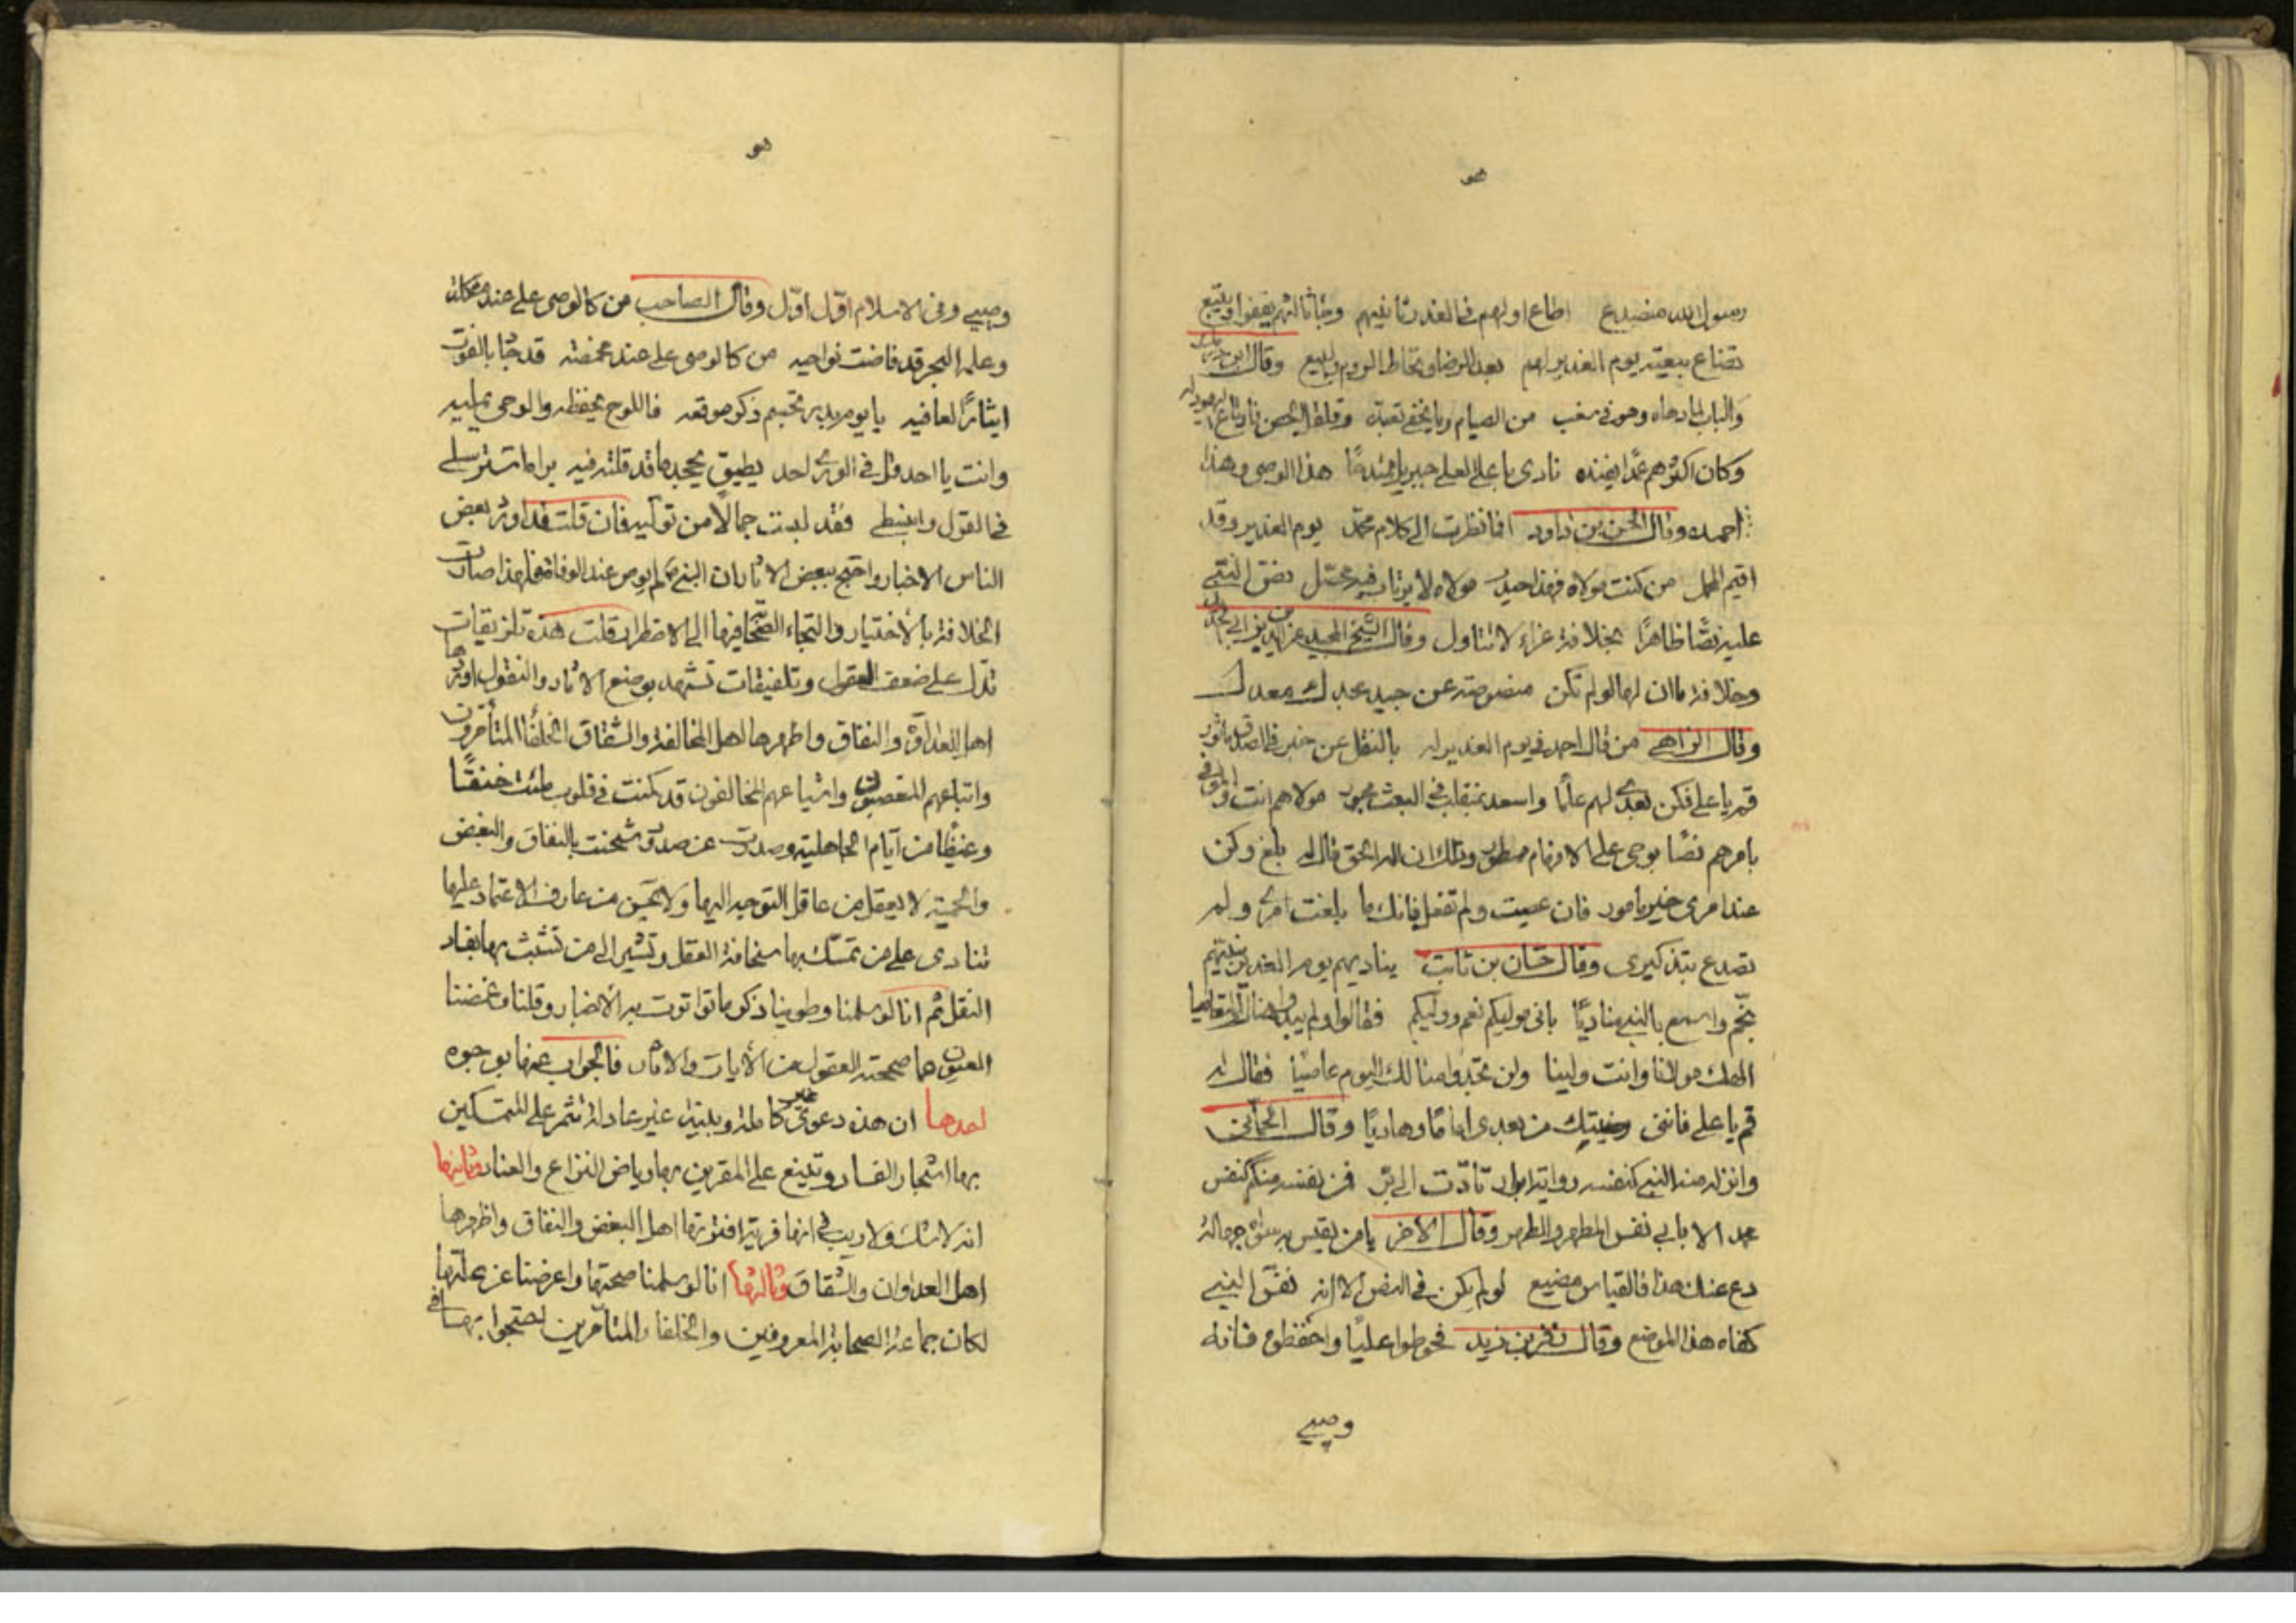 هو
رسول الله منضيع اطاع اولهم في الغدر ثانيهم وجا ثالثهم يقفو او يتبع
تضاع بيعته يوم الغدير لهم بعد الرضا وتحاط الروم والبيع وقال ابن
والباب لما دحاه وهو في سغب من الصيام وما يخفى تعبده وقلقل الحصن فارتاع اليهود له
وكان اكثرهم عمدا يفنده نادى باعلى العلى جبريل ممتدحا هذا الوصي وهذا
احمده وقال الحسن بن داود افما نظرت الى كلام محمد يوم الغدير وقد
اقيم المحمل من كنت مولاه فهذا حيدر مولاه لا يرتاب فيه محصل نص النبي
عليه نصا ظاهرا بخلافة غراء لا تتاول وقال الشيخ المجيد عز الدين بن ابي الحديد
وخلافة ما ان لها لو لم تكن منصوصة عن جيد مجدك معدل
وقال الزاهي من قال احمد في يوم الغدير له بالنقل عن خبر في الصدق ماثور
قم يا على فكن بعدي لهم علما واسعد بمنقلب في البعث محبور مولاهم انت والموفى
بامرهم نصا بوحي على الافهام مسطور وذلك ان اله الحق قال له بلغ وكن
عند امري خير مامور فان عصيت ولم تفعل فانك ما بلغت امري ولم
تصدع بتذكيري وقال حسان بن ثابت يناديهم يوم الغدير نبيهم
بخم واسمع بالنبي مناديا باني موليكم نعم ووليكم فقالوا ولم يبدوا هناك التعاميا
الهك مولانا وانت ولينا ولن تجدوا منا لك اليوم عاصيا فقال له
قم يا على فانني رضيتك من بعدي اماما وهاديا وقال الحماني
وانزله منه النبي كنفسه رواية ابرار تادت الى بر فمن نفسه منكم كنفس
محمد الا بابي نفس المطهر والطهر وقال الاخر يا من يقيس به سواه جهالة
دع عنك هذا فالقياس مضيع لو لم يكن في النص الا انه نفس النبي
كفاه هذا الموضع وقال زفر بن زيد فحوطوا عليا واحفظوه فانه
وصيي
هو
وصيي وفي الاسلام اول اول وقال الصاحب من كالوصي على عند مشكلة
وعلمه البحر قد فاضت نواحيه من كالوصي على عند مخمصة قد جاد بالقوت
ايثارا لعافيه يا يوم بدر تجشم ذكر موقعه فاللوح يحفظه والوحي يمليه
وانت يا احد قل في الورى احد يطيق يجحد ما قد قلته فيه براءة استرسلي
في القول وانبسطي فقد لبست جمالا من توليه فان قلت قد اورد بعض
الناس الاخبار واحتج ببعض الاثار بان النبي لم يوص عند الوفاة فلهذا صارت
الخلافة بالاختيار والتجاء الصحابة فيها الى الاضطرار قلت هذه تلزيقات
تدل على ضعف العقول وتلفيقات تشهد بوضع الاثار والنقول اوردها
اهل العداوة والنفاق واظهرها اهل المخالفة والشقاق الخلفا المتأخرون
واتباعهم المتعصبون واشياعهم المخالفون قد كمنت في قلوب ملئت حنقا
وغيظا من ايام الجاهلية وصدرت عن صدور شحنت بالنفاق والبغض
والحمية لا يعقل من عاقل التوجه اليها ولا يحسن من عارف الاعتماد عليها
تنادى على من تمسك بها بسخافة العقل وتشير الى من تشبث بها بفساد
النقل ثم انا لو سلمنا وطوينا ذكر ما تواترت به الاخبار وقلنا وغمضنا
العيون عما صححته العقول من الايات والاثار فالجواب عنها بوجوه
احدها ان هذه دعوى غير كاملة وبلية غير عادلة تثمر على المتمسكين
بها اشجار الفساد وتينع على المقرين بها رياض النزاع والعناد وثانيها
انه لا شك ولا ريب في انها فرية افترتها اهل البغض والنفاق واظهرها
اهل العداوان والشقاق وثالثها انا لو سلمنا صحتها واعرضنا عن علتها
لكان جماعة الصحابة المعروفين والخلفا والمتأخرين احتجوا بها في